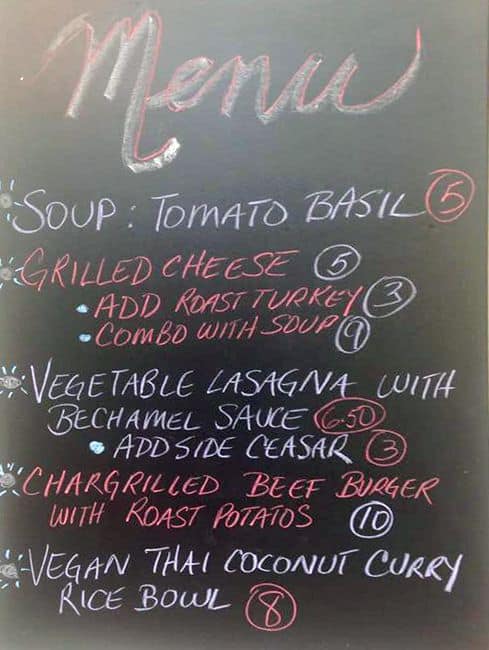 Menu
SOUP: TOMATO BASIL 5
GRILLED CHEESE 5
• ADD ROAST TURKEY 3
• COMBO WITH SOUP 9
VEGETABLE LASAGNA WITH
BECHAMEL SAUCE 6.50
• ADD SIDE CEASAR 3
CHARGRILLED BEEF BURGER
WITH ROAST POTATOS 10
VEGAN THAI COCONUT CURRY
RICE BOWL 8